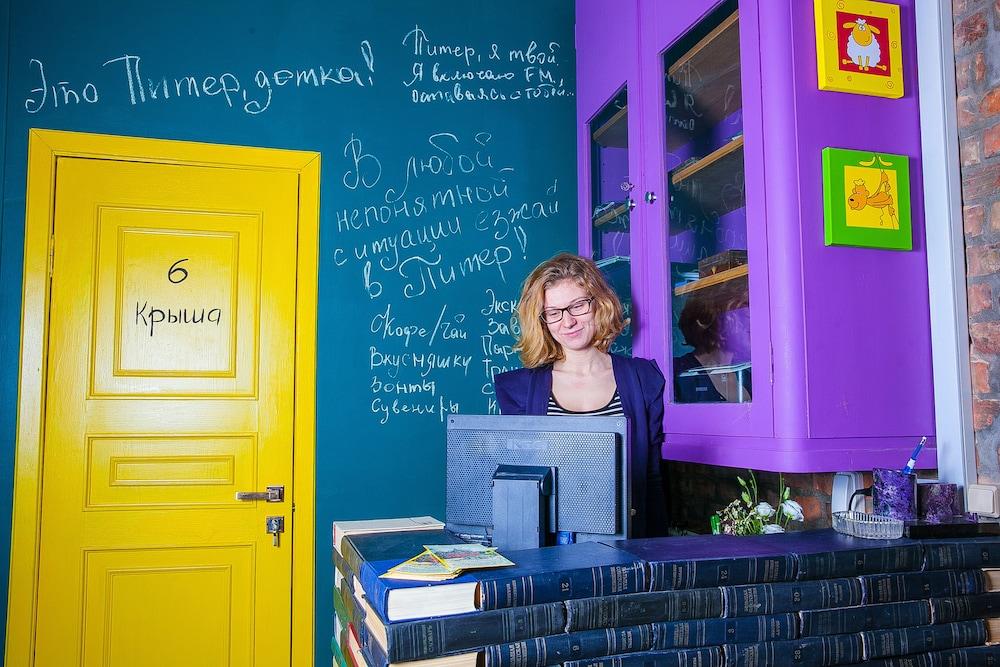 Это Питер, детка!
Питер, я твой.
Я включаю FM,
оставаясь с тобой...
В любой
непонятной
ситуации езжай
в Питер!
6
Крыша
Кофе/Чай
Вкусняшку
Зонты
Сувениры
Экск
Зав